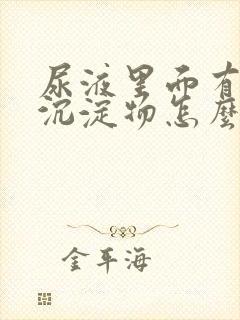 尿液里面有
沉淀物怎麼
金平海